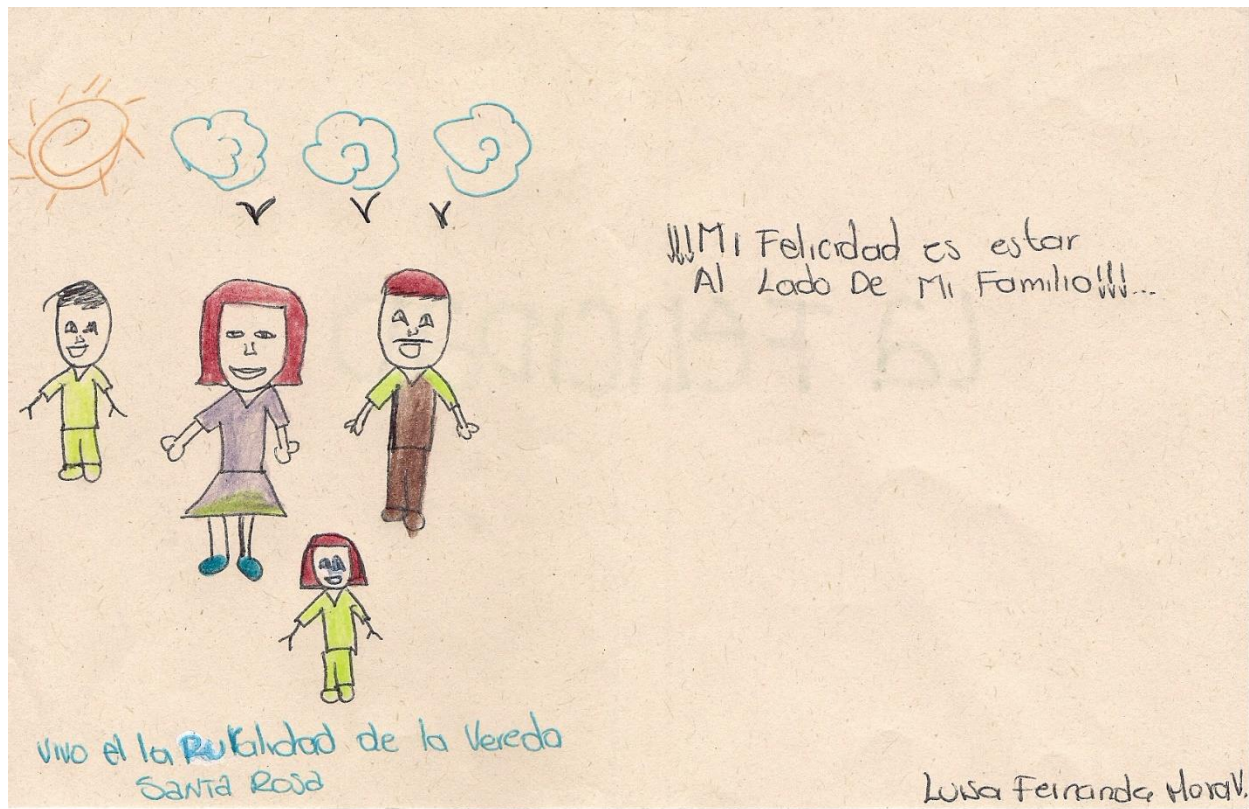 !!!Mi Felicidad es estar
Al Lado De Mi Familia!!!...
Vivo el la Ruralidad de la Vereda
Santa Rosa
Luisa Fernanda Mora V.